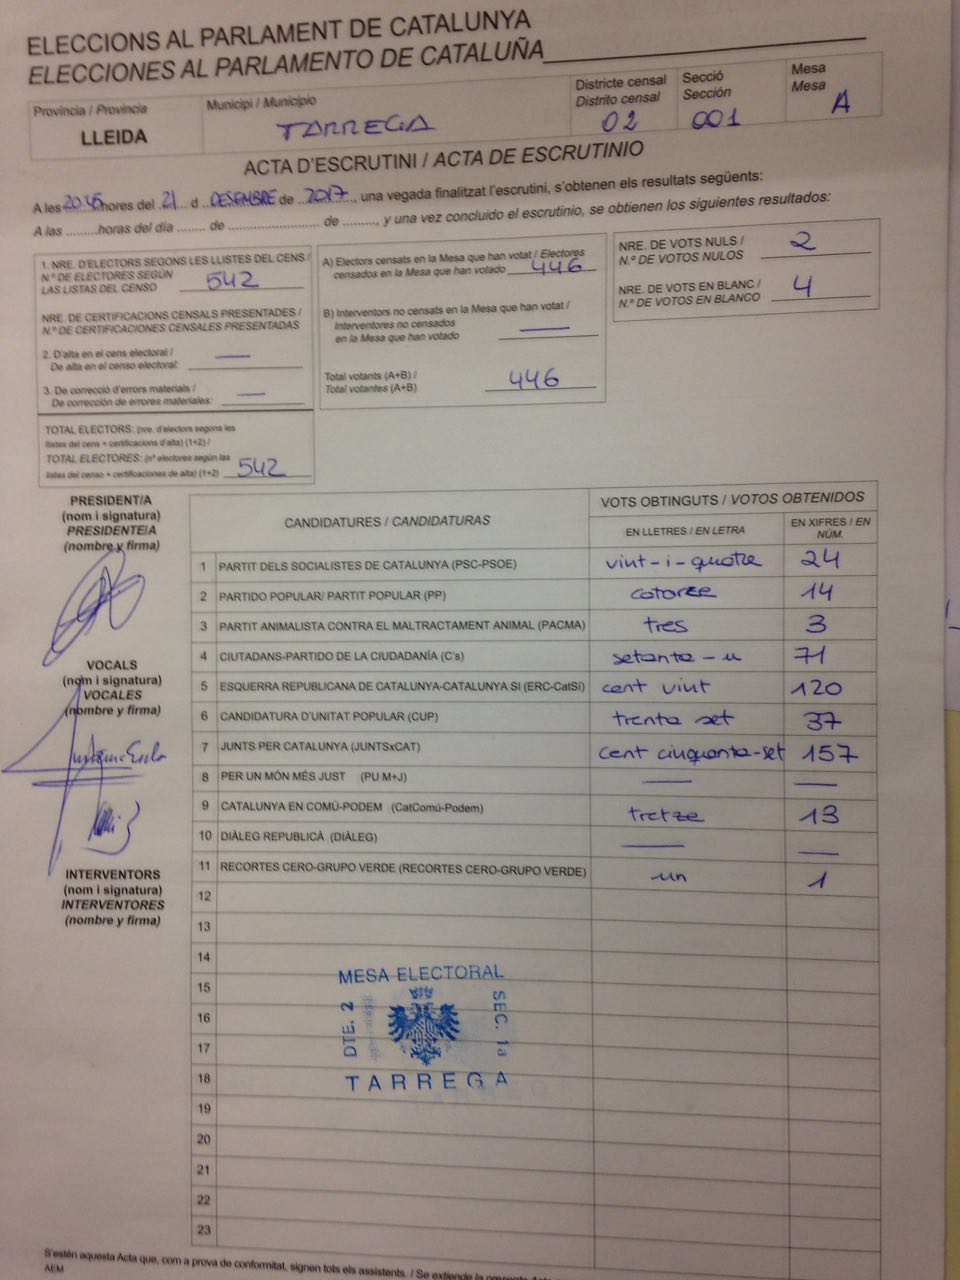 ELECCIONS AL PARLAMENT DE CATALUNYA
ELECCIONES AL PARLAMENTO DE CATALUÑA
Província / Provincia
LLEIDA
Municipi / Municipio
TARREGA
Districte censal
Distrito censal
02
Secció
Sección
001
Mesa
Mesa
A
ACTA D'ESCRUTINI / ACTA DE ESCRUTINIO
A les 20:45 hores del 21 d DESEMBRE de 2017, una vegada finalitzat l'escrutini, s'obtenen els resultats següents:
A las .........horas del día ....... de ........................ de ........., y una vez concluido el escrutinio, se obtienen los siguientes resultados:
1. NRE. D'ELECTORS SEGONS LES LLISTES DEL CENS /
N.º DE ELECTORES SEGÚN
LAS LISTAS DEL CENSO 542
NRE. DE CERTIFICACIONS CENSALS PRESENTADES /
N.º DE CERTIFICACIONES CENSALES PRESENTADAS
2. D'alta en el cens electoral /
De alta en el censo electoral: —
3. De correcció d'errors materials /
De corrección de errores materiales: —
TOTAL ELECTORS: (nre. d'electors segons les
llistes del cens + certificacions d'alta) (1+2) /
TOTAL ELECTORES: (nº electores según las
listas del censo + certificaciones de alta) (1+2) 542
A) Electors censats en la Mesa que han votat / Electores
censados en la Mesa que han votado 446
B) Interventors no censats en la Mesa que han votat /
Interventores no censados
en la Mesa que han votado —
Total votants (A+B) /
Total votantes (A+B) 446
NRE. DE VOTS NULS /
N.º DE VOTOS NULOS 2
NRE. DE VOTS EN BLANC /
N.º DE VOTOS EN BLANCO 4
PRESIDENT/A
(nom i signatura)
PRESIDENTE/A
(nombre y firma)
VOCALS
(nom i signatura)
VOCALES
(nombre y firma)
INTERVENTORS
(nom i signatura)
INTERVENTORES
(nombre y firma)
CANDIDATURES / CANDIDATURAS
VOTS OBTINGUTS / VOTOS OBTENIDOS
EN LLETRES / EN LETRA
EN XIFRES / EN NÚM.
1 PARTIT DELS SOCIALISTES DE CATALUNYA (PSC-PSOE) vint-i-quatre 24
2 PARTIDO POPULAR/ PARTIT POPULAR (PP) catorze 14
3 PARTIT ANIMALISTA CONTRA EL MALTRACTAMENT ANIMAL (PACMA) tres 3
4 CIUTADANS-PARTIDO DE LA CIUDADANÍA (C's) setanta-u 71
5 ESQUERRA REPUBLICANA DE CATALUNYA-CATALUNYA SI (ERC-CatSí) cent vint 120
6 CANDIDATURA D'UNITAT POPULAR (CUP) trenta set 37
7 JUNTS PER CATALUNYA (JUNTSxCAT) cent cinquanta-set 157
8 PER UN MÓN MÉS JUST (PU M+J) — —
9 CATALUNYA EN COMÚ-PODEM (CatComú-Podem) tretze 13
10 DIÀLEG REPUBLICÀ (DIÀLEG) — —
11 RECORTES CERO-GRUPO VERDE (RECORTES CERO-GRUPO VERDE) un 1
12
13
14
15
16
17
18
19
20
21
22
23
MESA ELECTORAL
DTE. 2
SEC. 1a
TARREGA
S'estén aquesta Acta que, com a prova de conformitat, signen tots els assistents. / Se extiende la presente Acta
AEM